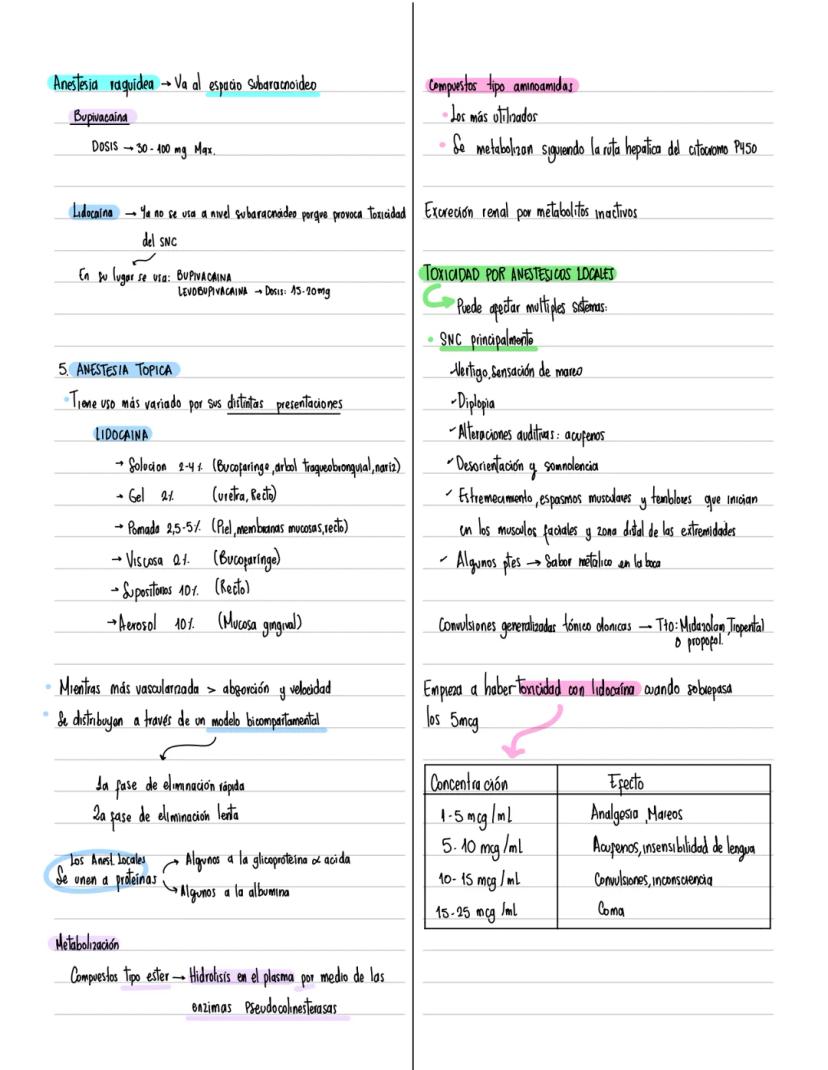 Anestesia raquidea → Va al espacio Subaracnoideo
Bupivacaina
DOSIS → 30-100 mg Max.
Lidocaína → Ya no se usa a nivel subaracnoideo porque provoca Toxicidad
del SNC
En su lugar se usa: BUPIVACAINA
LEVOBUPIVACAINA → Dosis: 15-20mg
5. ANESTESIA TOPICA
• Tiene uso más variado por sus distintas presentaciones
LIDOCAINA
→ Solucion 2-4% (Bucofaringe, arbol traqueobronquial, nariz)
→ Gel 2% (uretra, Recto)
→ Pomada 2,5-5% (Piel, membranas mucosas, recto)
→ Viscosa 2% (Bucofaringe)
→ Supositorios 10% (Recto)
→ Aerosol 10% (Mucosa gingival)
• Mientras más vascularizada > absorción y velocidad
• Se distribuyen a través de un modelo bicompartamental
1a fase de eliminación rápida
2a fase de eliminación lenta
Los Anest. Locales
Se unen a proteínas
→ Algunos a la glicoproteina α acida
→ Algunos a la albumina
Metabolización
Compuestos tipo ester → Hidrolisis en el plasma por medio de las
enzimas Pseudocolinesterasas
Compuestos tipo aminoamidas
• Los más utilizados
• Se metabolizan siguiendo la ruta hepatica del citocromo P450
Excreción renal por metabolitos inactivos
TOXICIDAD POR ANESTESICOS LOCALES
Puede afectar multiples sistemas:
• SNC principalmente
✓ Vertigo, Sensación de mareo
✓ Diplopia
✓ Alteraciones auditivas: acufenos
✓ Desorientación y somnolencia
✓ Estremecimiento, espasmos musculares y temblores que inician
en los musculos faciales y zona distal de las extremidades
✓ Algunos ptes → Sabor metálico en la boca
Convulsiones generalizadas tónico clonicas → Tto: Midazolam, Tiopental
o propofol.
Empieza a haber toxicidad con lidocaína cuando sobrepasa
los 5mcg
Concentración Efecto
1-5 mcg/ml Analgesia, Mareos
5-10 mcg/ml Acufenos, insensibilidad de lengua
10-15 mcg/ml Convulsiones, inconsciencia
15-25 mcg/ml Coma